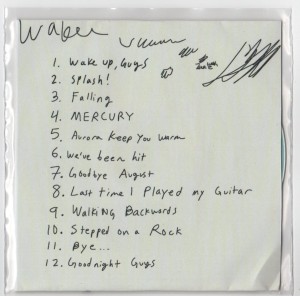 Waben
1. Wake up, Guys
2. Splash!
3. Falling
4. MERCURY
5. Aurora Keep You Warm
6. We've been hit
7. Goodbye August
8. Last time I Played my Guitar
9. Walking Backwards
10. Stepped on a Rock
11. Bye...
12. Goodnight Guys